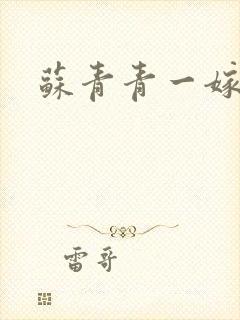 蘇青青一嫁
雷哥